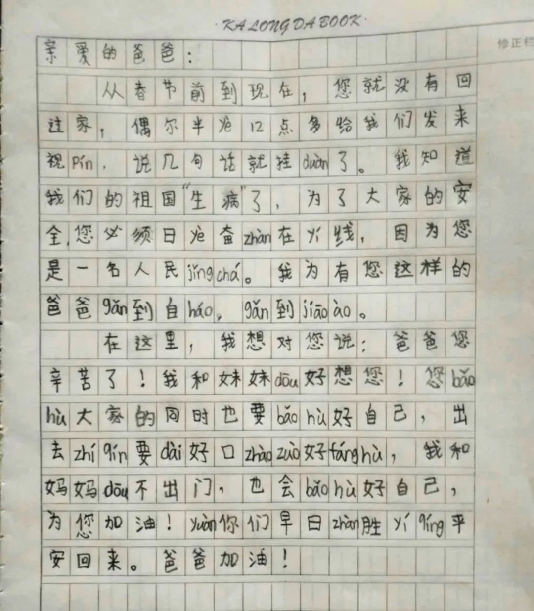 ·KALONG DA BOOK·
修正栏
亲爱的爸爸：
从春节前到现在，您就没有回
过家，偶尔半夜12点多给我们发来
视pín，说几句话就挂duàn了。我知道
我们的祖国“生病”了，为了大家的安
全，您必须日夜奋zhàn在yí线，因为您
是一名人民jǐngchá。我为有您这样的
爸爸gǎn到自háo，gǎn到jiāoào。
在这里，我想对您说：爸爸您
辛苦了！我和妹妹dōu好想您！您bǎo
hù大家的同时也要bǎohù好自己，出
去zhíqín要dài好口zhàozuò好fánghù，我和
妈妈dōu不出门，也会bǎohù好自己，
为您加油！yuàn你们早日zhàn胜yíqíng平
安回来。爸爸加油！